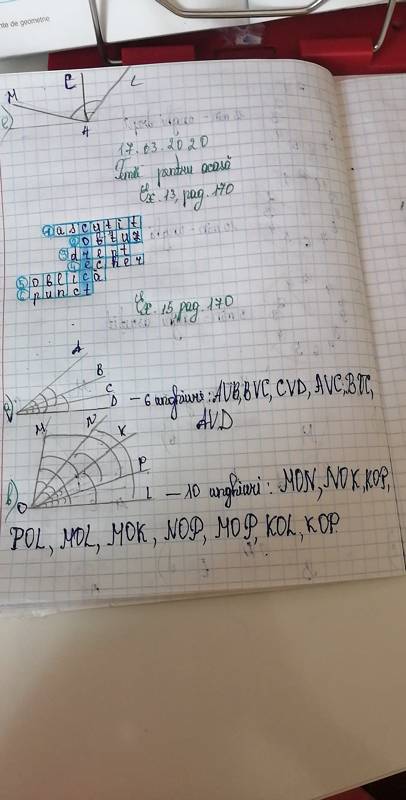 nte de geometrie
M C L
c)
A
17.03.2020
Temă pentru acasă
Ex. 13, pag. 170
1) ascutit
2) obtuz
3) drept
4) echer
5) oblica
6) punct
Ex. 15, pag. 170
A
B
C
a) V D – 6 unghiuri: AVB, BVC, CVD, AVC, BVC,
AVD
M N K
P
b) O L – 10 unghiuri: MON, NOK, KOP,
POL, MOL, MOK, NOP, MOP, KOL, KOP